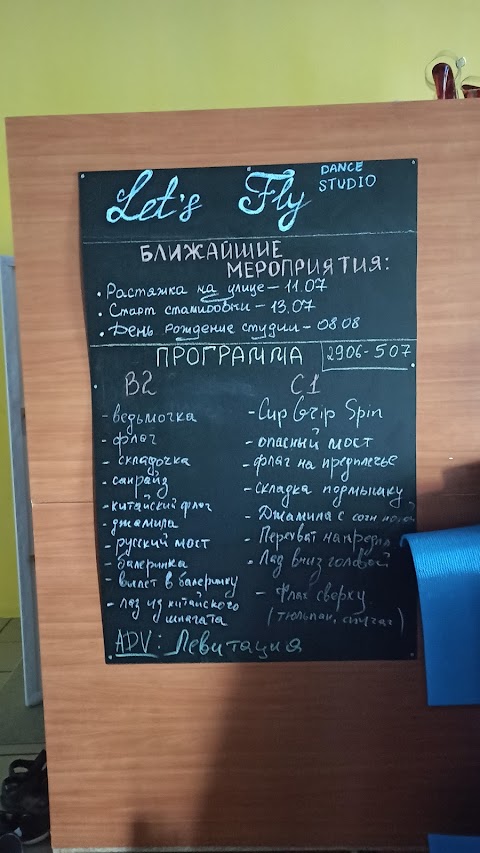 Let's Fly DANCE STUDIO
БЛИЖАЙШИЕ
МЕРОПРИЯТИЯ:
• Растяжка на улице – 11.07
• Старт стамповки – 13.07
• День рождение студии – 08.08
ПРОГРАММА 2906-507
B2
- ведьмочка
- флаг
- складочка
- санрайз
- китайский флаг
- джамила
- русский мост
- балеринка
- вылет в балеринку
- лаз из китайского
шпагата
C1
- Cup Grip Spin
- опасный мост
- флаг на предплечье
- складка подмышку
- Джамила с согн ногой
- Перехват на предпл
- Лаз вниз головой
- Флаг сверху
(тюльпан, шпагат)
ADV: Левитация